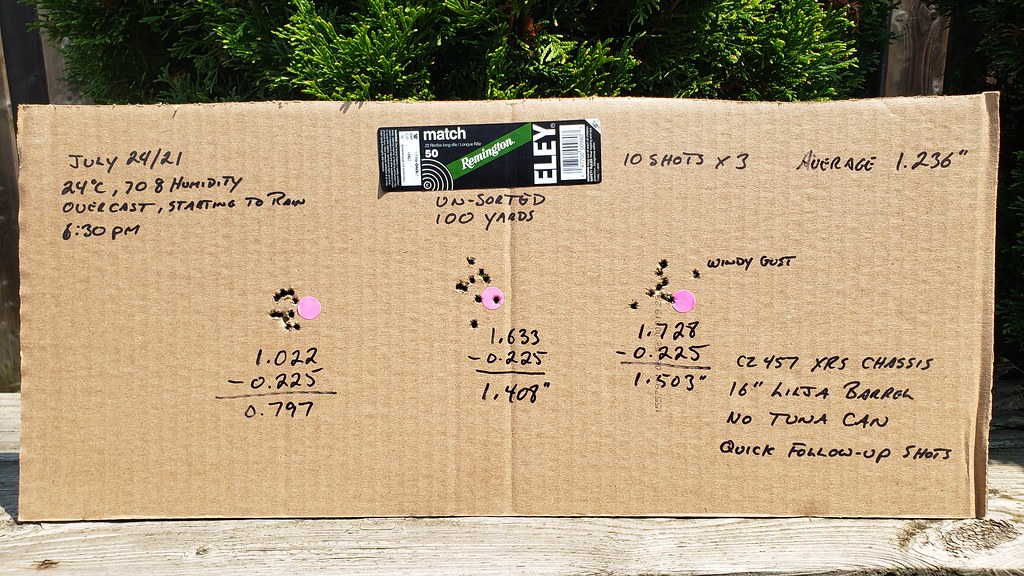 July 24/21
24°C, 70 8 Humidity
Overcast, Starting to Rain
6:30 pm
match
22 Rimfire long rifle / Longue Rifle
50
Remington.
ELEY
Un-Sorted
100 Yards
10 Shots x 3
Average 1.236"
Windy Gust
1.022
- 0.225
0.797
1.633
- 0.225
1.408"
1.728
- 0.225
1.503"
CZ 457 XRS Chassis
16" Lilja Barrel
No Tuna Can
Quick Follow-up Shots